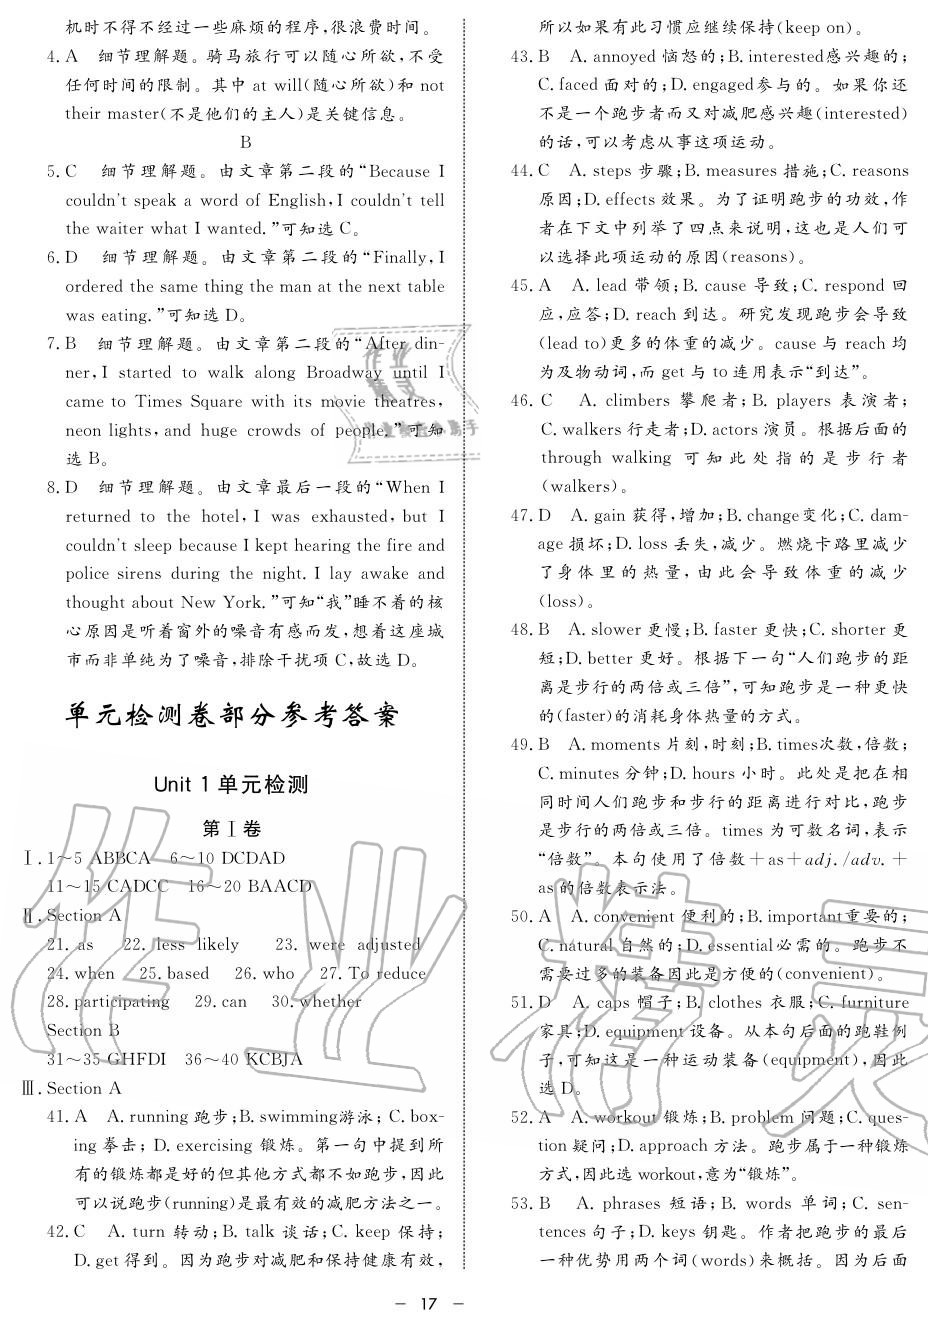 机时不得不经过一些麻烦的程序,很浪费时间。
4. A 细节理解题。骑马旅行可以随心所欲,不受
任何时间的限制。其中 at will(随心所欲)和 not
their master(不是他们的主人)是关键信息。
B
5. C 细节理解题。由文章第二段的“Because I
couldn't speak a word of English, I couldn't tell
the waiter what I wanted.”可知选 C。
6. D 细节理解题。由文章第二段的“Finally, I
ordered the same thing the man at the next table
was eating.”可知选 D。
7. B 细节理解题。由文章第二段的“After din-
ner, I started to walk along Broadway until I
came to Times Square with its movie theatres,
neon lights, and huge crowds of people.”可知
选 B。
8. D 细节理解题。由文章最后一段的“When I
returned to the hotel, I was exhausted, but I
couldn't sleep because I kept hearing the fire and
police sirens during the night. I lay awake and
thought about New York.”可知“我”睡不着的核
心原因是听着窗外的噪音有感而发,想着这座城
市而非单纯为了噪音,排除干扰项 C,故选 D。
单元检测卷部分参考答案
Unit 1 单元检测
第Ⅰ卷
Ⅰ. 1～5 ABBCA 6～10 DCDAD
11～15 CADCC 16～20 BAACD
Ⅱ. Section A
21. as 22. less likely 23. were adjusted
24. when 25. based 26. who 27. To reduce
28. participating 29. can 30. whether
Section B
31～35 GHFDI 36～40 KCBJA
Ⅲ. Section A
41. A A. running 跑步;B. swimming游泳; C. box-
ing 拳击; D. exercising 锻炼。第一句中提到所
有的锻炼都是好的但其他方式都不如跑步,因此
可以说跑步(running)是最有效的减肥方法之一。
42. C A. turn 转动;B. talk 谈话;C. keep 保持;
D. get 得到。因为跑步对减肥和保持健康有效,
所以如果有此习惯应继续保持(keep on)。
43. B A. annoyed 恼怒的;B. interested感兴趣的;
C. faced 面对的;D. engaged参与的。如果你还
不是一个跑步者而又对减肥感兴趣(interested)
的话,可以考虑从事这项运动。
44. C A. steps 步骤;B. measures 措施;C. reasons
原因;D. effects 效果。为了证明跑步的功效,作
者在下文中列举了四点来说明,这也是人们可
以选择此项运动的原因(reasons)。
45. A A. lead 带领;B. cause 导致;C. respond 回
应,应答;D. reach 到达。研究发现跑步会导致
(lead to)更多的体重的减少。cause 与 reach 均
为及物动词,而 get 与 to 连用表示“到达”。
46. C A. climbers 攀爬者;B. players 表演者;
C. walkers 行走者;D. actors 演员。根据后面的
through walking 可知此处指的是步行者
(walkers)。
47. D A. gain 获得,增加;B. change变化;C. dam-
age 损坏;D. loss 丢失,减少。燃烧卡路里减少
了身体里的热量,由此会导致体重的减少
(loss)。
48. B A. slower 更慢;B. faster 更快;C. shorter 更
短;D. better 更好。根据下一句“人们跑步的距
离是步行的两倍或三倍”,可知跑步是一种更快
的(faster)的消耗身体热量的方式。
49. B A. moments 片刻,时刻;B. times次数,倍数;
C. minutes 分钟;D. hours 小时。此处是把在相
同时间人们跑步和步行的距离进行对比,跑步
是步行的两倍或三倍。times 为可数名词,表示
“倍数”。本句使用了倍数＋as＋adj./adv.＋
as 的倍数表示法。
50. A A. convenient 便利的;B. important重要的;
C. natural 自然的;D. essential必需的。跑步不
需要过多的装备因此是方便的(convenient)。
51. D A. caps 帽子;B. clothes 衣服;C. furniture
家具;D. equipment 设备。从本句后面的跑鞋例
子,可知这是一种运动装备(equipment),因此
选 D。
52. A A. workout 锻炼;B. problem 问题;C. ques-
tion 疑问;D. approach 方法。跑步属于一种锻炼
方式,因此选 workout,意为“锻炼”。
53. B A. phrases 短语;B. words 单词;C. sen-
tences 句子;D. keys 钥匙。作者把跑步的最后
一种优势用两个词(words)来概括。因为后面
－ 17 －
作业精灵